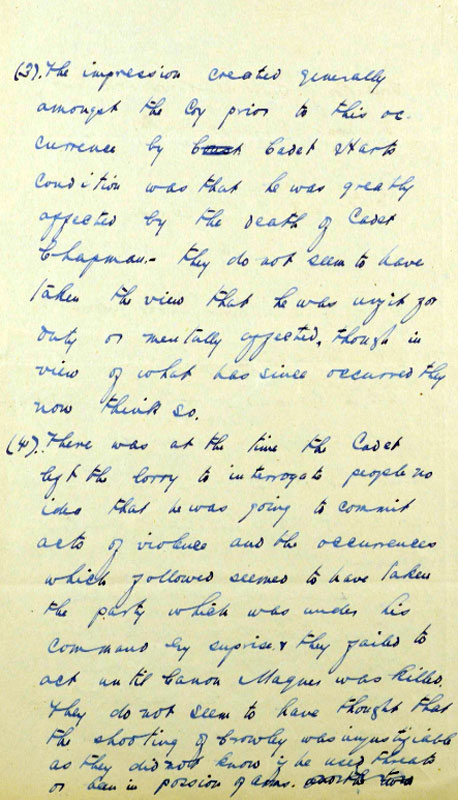 (3). The impression created generally
amongst the Coy prior to this oc-
currence by Cadet Harts
condition was that he was greatly
affected by the death of Cadet
Chapman.- they do not seem to have
taken the view that he was unfit for
duty or mentally affected, though in
view of what has since occurred they
now think so.
(4). There was at the time the Cadet
left the lorry to interrogate people no
idea that he was going to commit
acts of violence and the occurrences
which followed seemed to have taken
the party which was under his
command by suprise & they failed to
act until Canon Magner was killed.
They do not seem to have thought that
the shooting of Crowley was unjustifiable
as they did not know if he used threats
or was in possion of arms.